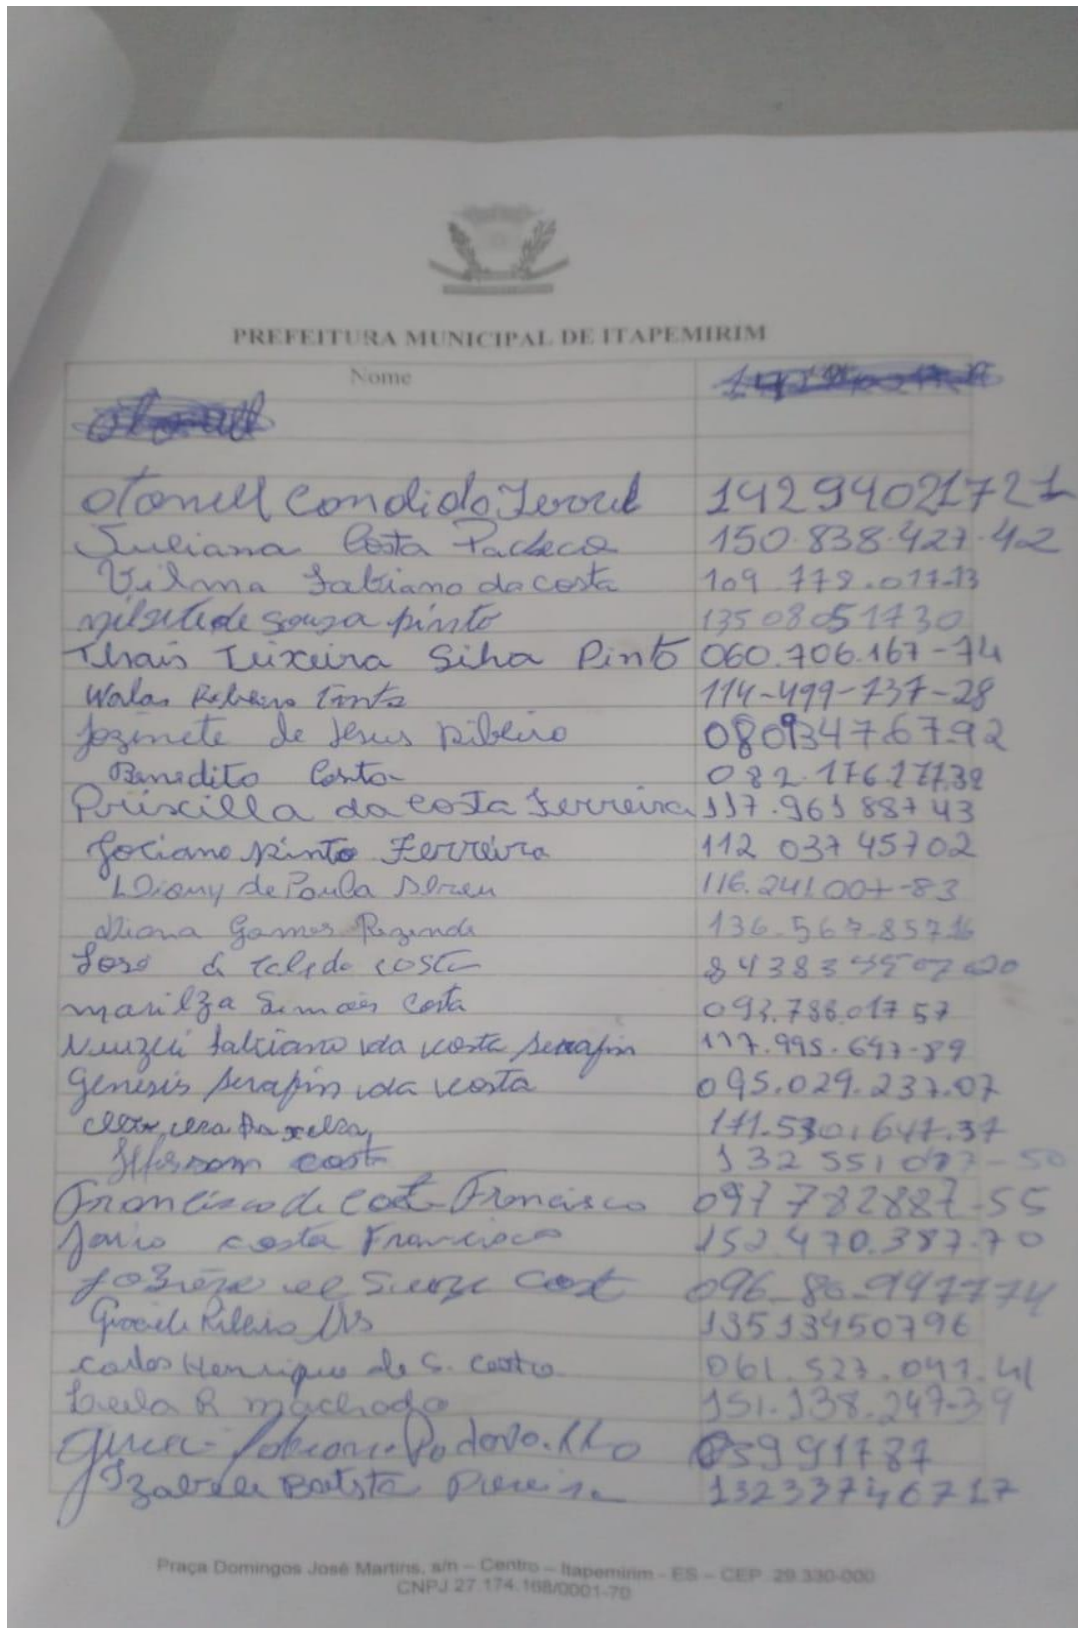 PREFEITURA MUNICIPAL DE ITAPEMIRIM
Nome
Otoniell Condido 14294021721
Juliana Costa Pacheco 150.838.427-42
Vilma Fabiano da costa 109.778.017-13
de souza pinto 13508051730
Thais Teixeira Silva Pinto 060.706.167-74
Walas Ribeiro 114-499-737-28
Jozinete de Jesus Ribeiro 08093476792
Benedito Costa 082.176.17738
Priscilla da Costa Ferreira 117.96188743
Jociano Pinto Ferreira 112 037 45702
de Paula Abreu 116.241007-83
Diana Gomes Rezende 136.567.85716
José costa
marilza Simões Costa 093.788.01757
Fabiano da costa Serafim 117.995.647-89
Genesis Serafim da costa 095.029.237.07
171.530.647.37
Jefersom costa 132 551 087-50
Francisco de Costa Francisco 097 782887-55
costa Francisco 152.470.387.70
096 86 947774
Ribeiro 13513450796
Carlos Henrique de S. Castro 061.527.047.41
Leila R machado 151.138.247-39
05991787
Izabele Batista Pereira 13233746717
Praça Domingos José Martins, s/n – Centro – Itapemirim – ES – CEP. 29.330-000
CNPJ 27.174.168/0001-70